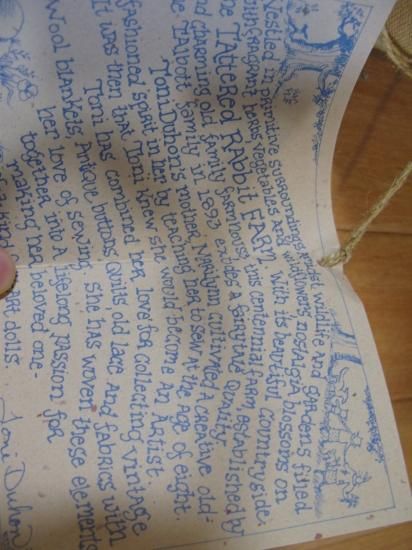 Nestled in primitive surroundings amidst wildlife and gardens filled
with fragrant herbs, vegetables and wildflowers, nostalgia blossoms on
The TAttered RABbit FARM. With its beautiful countryside
and charming old family farmhouse, this centennial farm, established by
the TAlbott family in 1893 exudes a primitive quality.
Toni Duhon's mother, Marilynn, cultivated a creative old-
fashioned spirit in her by teaching her to sew at the age of eight.
It was then that Toni knew she would become an Artist.
Toni has combined her love for collecting vintage
wool blankets, Antique buttons, quilts, old lace and fabrics with
her love of sewing. She has woven these elements
together into a lifelong passion for
making her beloved one-
of-a-kind art dolls.
Toni Duhon